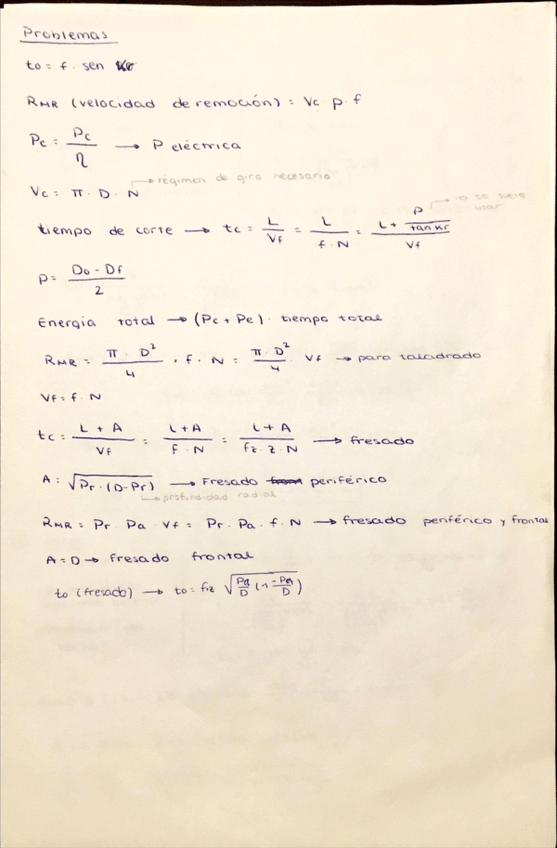 Problemas
to = f · sen Kr
RMR (velocidad de remoción) = Vc · p · f
Pe = Pc / η → P eléctrica
→ régimen de giro necesario
Vc = π · D · N
→ no se suele usar
tiempo de corte → tc = L / Vf = L / f · N = L + p / tan Kr / Vf
p = Do - Df / 2
Energía total → (Pc + Pe) · tiempo total
RMR = π · D² / 4 · f · N = π · D² / 4 · Vf → para taladrado
Vf = f · N
tc = L + A / Vf = L + A / f · N = L + A / fz · z · N → fresado
A = √Pr · (D - Pr) → Fresado periférico
→ profundidad radial
RMR = Pr · Pa · Vf = Pr · Pa · f · N → fresado periférico y frontal
A = D → fresado frontal
to (fresado) → to = fz √